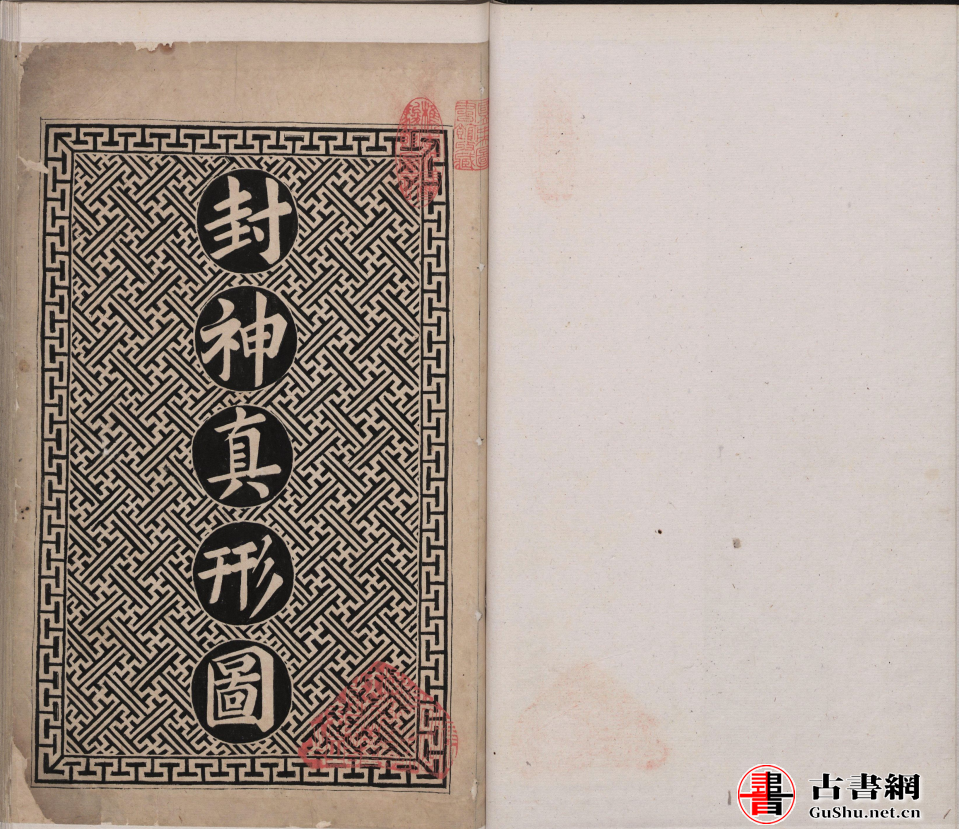 封神真形圖
書 古書網
GuShu.net.cn